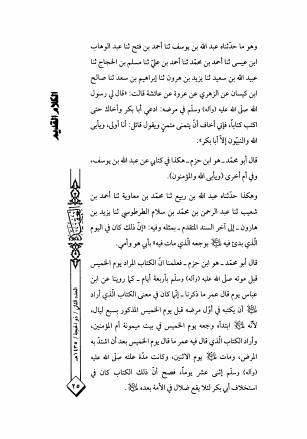 وهو ما حدّثناه عبد الله بن يوسف ثنا أحمد بن فتح ثنا عبد الوهاب
ابن عيسى ثنا أحمد بن محمّد ثنا أحمد بن علي ثنا مسلم بن الحجاج ثنا
عبيد الله بن سعيد ثنا يزيد بن هرون ثنا إبراهيم بن سعد ثنا صالح
ابن كيسان عن الزهري عن عروة عن عائشة قالت: «قال لي رسول
الله صلّى الله عليه (وآله) وسلّم في مرضه: ادعي أبا بكر وأخاك حتى
اكتب كتاباً، فإنّي أخاف أنْ يتمنى متمنٍ ويقول قائل: أنا أولى، ويأبى
الله والنبيّون إلاّ أبا بكر».
قال أبو محمّد ـ هو ابن حزم ـ هكذا في كتابي عن عبد الله بن يوسف،
وفي أم أخرى (ويأبى الله والمؤمنون).
وهكذا حدّثناه عبد الله بن ربيع ثنا محمّد بن معاوية ثنا أحمد بن
شعيب ثنا عبد الرحمن بن محمّد بن سلام الطرطوسي ثنا يزيد بن
هارون ـ إلى آخر السند المتقدم ـ بمثله وفيه: «إنّ ذلك كان في اليوم
الّذي بدئ فيه بوجعه الّذي مات فيه» بأبي هو وأمي.
قال أبو محمّد ـ هو ابن حزم ـ فعلمنا أنّ الكتاب المراد يوم الخميس
قبل موته صلّى الله عليه (وآله) وسلّم بأربعة أيام ـ كما روينا عن ابن
عباس يوم قال عمر ما ذكرنا ـ إنّما كان في معنى الكتاب الّذي أراد
أن يكتبه في أوّل مرضه قبل يوم الخميس المذكور بسبع ليال،
لأنّه ابتدأه وجعه يوم الخميس في بيت ميمونة أم المؤمنين،
وأراد الكتاب الّذي قال فيه عمر ما قال يوم الخميس بعد أن اشتدّ به
المرض، ومات يوم الاثنين، وكانت مدّة علته صلّى الله عليه
(وآله) وسلّم إثنى عشر يوماً، فصح أنّ ذلك الكتاب كان في
استخلاف أبي بكر لئلا يقع ضلال في الأمة بعده
الكلام القديم
العدد الثاني / ذو الحجة / ١٤٣٥هـ
٢٥